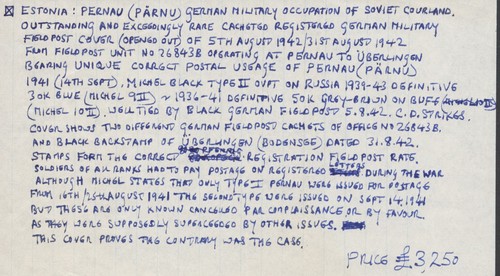 ESTONIA: PERNAU (PÄRNU) GERMAN MILITARY OCCUPATION OF SOVIET COURLAND.
OUTSTANDING AND EXCEEDINGLY RARE CACHETED REGISTERED GERMAN MILITARY
FIELDPOST COVER (OPENED OUT) OF 5TH AUGUST 1942/31ST AUGUST 1942
FROM FIELDPOST UNIT NO 26843B OPERATING AT PERNAU TO ÜBERLINGEN
BEARING UNIQUE CORRECT POSTAL USEAGE OF PERNAU (PÄRNU)
1941 (14TH SEPT), MICHEL BLACK TYPE II OVPT ON RUSSIA 1939-43 DEFINITIVE
30K BLUE (MICHEL 9II) ~ 1936-41 DEFINITIVE 50K GREY-BROWN ON BUFF
(MICHEL 10II). WELL TIED BY BLACK GERMAN FIELDPOST 5.8.42. C.D. STRIKES.
COVER SHOWS TWO DIFFERENT GERMAN FIELDPOST CACHETS OF OFFICE NO 26843B.
AND BLACK BACKSTAMP OF ÜBERLINGEN (BODENSEE) DATED 31.8.42.
STAMPS FORM THE CORRECT REGISTRATION FIELDPOST RATE.
SOLDIERS OF ALL RANKS HAD TO PAY POSTAGE ON REGISTERED LETTERS DURING THE WAR
ALTHOUGH MICHEL STATES THAT ONLY TYPE I PERNAU WERE ISSUED FOR POSTAGE
FROM 16TH/25TH AUGUST 1941 THE SECOND TYPE WERE ISSUED ON SEPT 14, 1941
BUT THESE ARE ONLY KNOWN CANCELLED PAR COMPLAISANCE OR BY FAVOUR
AS THEY WERE SUPPOSEDLY SUPERCEEDED BY OTHER ISSUES.
THIS COVER PROVES THE CONTRARY WAS THE CASE.
PRICE £3250